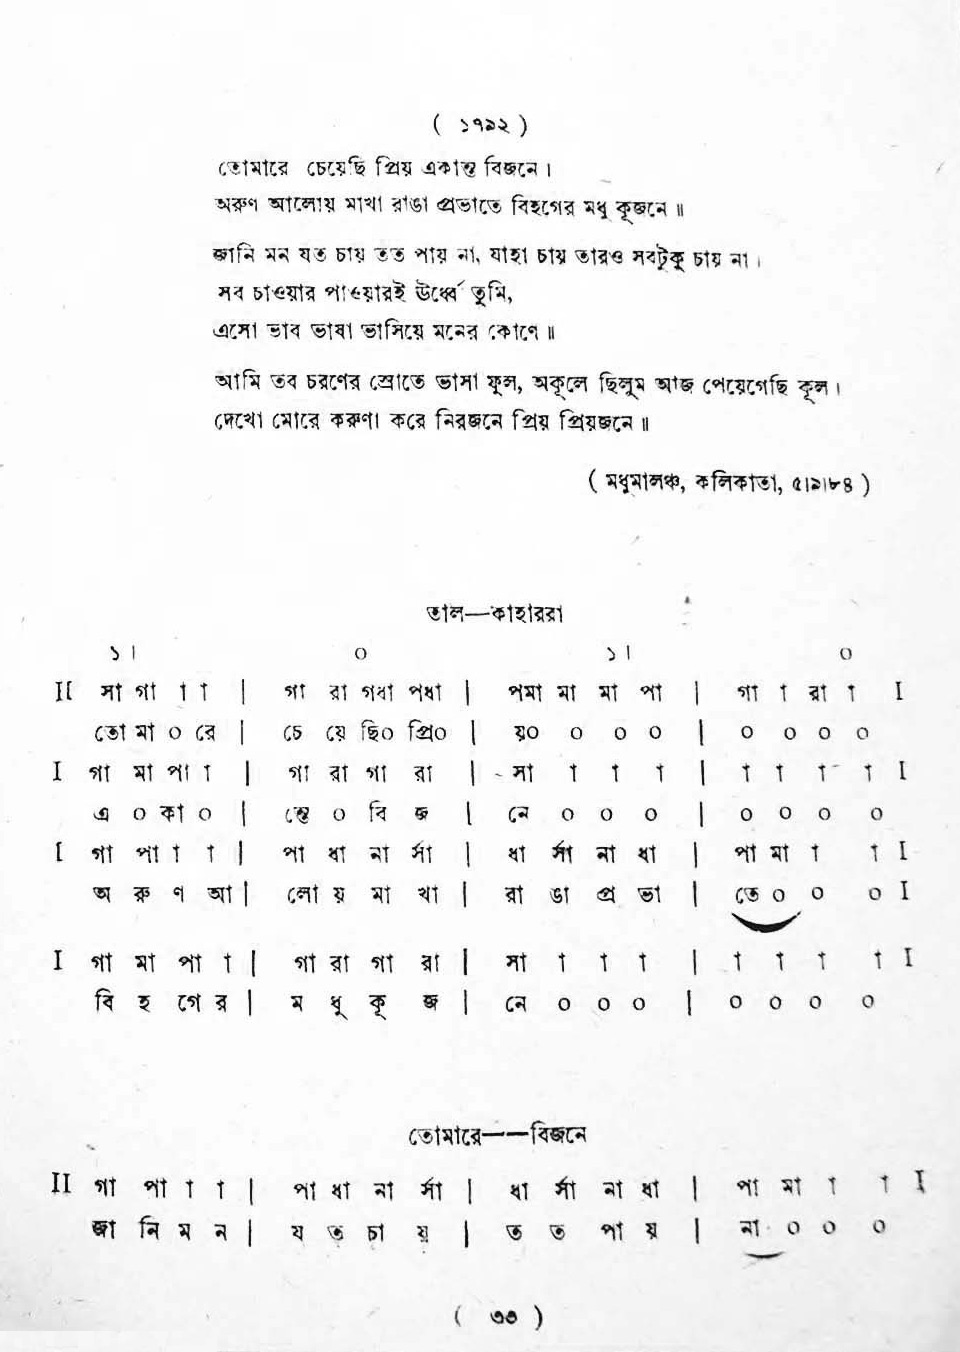 ( ১৭৯২ )
তোমারে চেয়েছি প্রিয় একান্ত বিজনে।
অরুণ আলোয় মাখা রাঙা প্রভাতে বিহগের মধু কূজনে॥
জানি মন যত চায় তত পায় না, যাহা চায় তারও সবটুকু চায় না।
সব চাওয়ার পাওয়ারই ঊর্ধ্বে তুমি,
এসো ভাব ভাষা ভাসিয়ে মনের কোণে॥
আমি তব চরণের স্রোতে ভাসা ফুল, অকূলে ছিলুম আজ পেয়েগেছি কূল।
দেখো মোরে করুণা করে নিরজনে প্রিয় প্রিয়জনে॥
( মধুমালঞ্চ, কলিকাতা, ৫।৯।৮৪ )
তাল—কাহাররা
১। ০ ১। ০
II সা গা া া | গা রা গধা পধা | পমা মা মা পা | গা া রা া I
তো মা ০ রে | চে য়ে ছি০ প্রি০ | য়০ ০ ০ ০ | ০ ০ ০ ০
I গা মা পা া | গা রা গা রা | সা া া া | া া া া I
এ ০ কা ০ | ন্তে ০ বি জ | নে ০ ০ ০ | ০ ০ ০ ০
I গা পা া া | পা ধা না র্সা | ধা র্সা না ধা | পা মা া া I
অ রু ণ আ | লো য় মা খা | রা ঙা প্র ভা | তে ০ ০ ০ I
I গা মা পা া | গা রা গা রা | সা া া া | া া া া I
বি হ গে র | ম ধু কূ জ | নে ০ ০ ০ | ০ ০ ০ ০
তোমারে——বিজনে
II গা পা া া | পা ধা না র্সা | ধা র্সা না ধা | পা মা া া I
জা নি ম ন | য ত চা য় | ত ত পা য় | না ০ ০ ০
( ৩৩ )